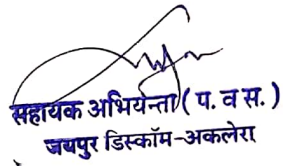 सहायक अभियन्ता ( प. व स. )
जयपुर डिस्कॉम-अकलेरा